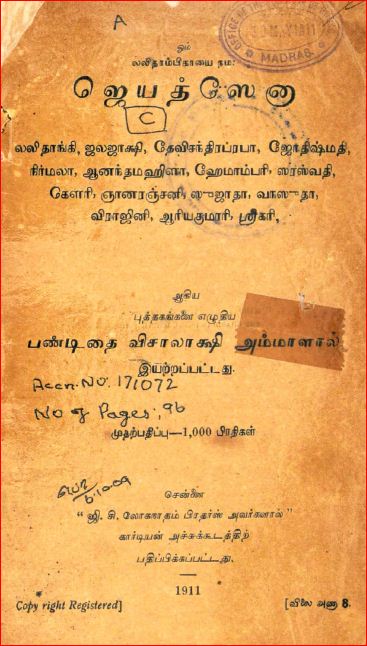 A
ஓம்
லலிதாம்பிகாயை நம:
ஜெயத்ஸேனா
C
லலிதாங்கி, ஜலஜாக்ஷி, தேவிசந்திரப்ரபா, ஜோதிஷ்மதி,
நிர்மலா, ஆனந்தமஹிளா, ஹேமாம்பரி, ஸரஸ்வதி,
கௌரி, ஞானரஞ்சனி, ஸுஜாதா, வாஸுதா,
விராஜினி, ஆரியகுமாரி, ஸ்ரீகரி,
ஆகிய
புத்தகங்களை எழுதிய
பண்டிதை விசாலாக்ஷி அம்மாளால்
இயற்றப்பட்டது.
Accn. No. 171072
No of Pages; 96
முதற்பதிப்பு—1,000 பிரதிகள்
சென்னை
"ஜி. சி. லோகநாதம் பிரதர்ஸ் அவர்களால்"
கார்டியன் அச்சுக்கூடத்திற்
பதிப்பிக்கப்பட்டது.
1911
Copy right Registered]
[விலை அணா 8.
MADRAS